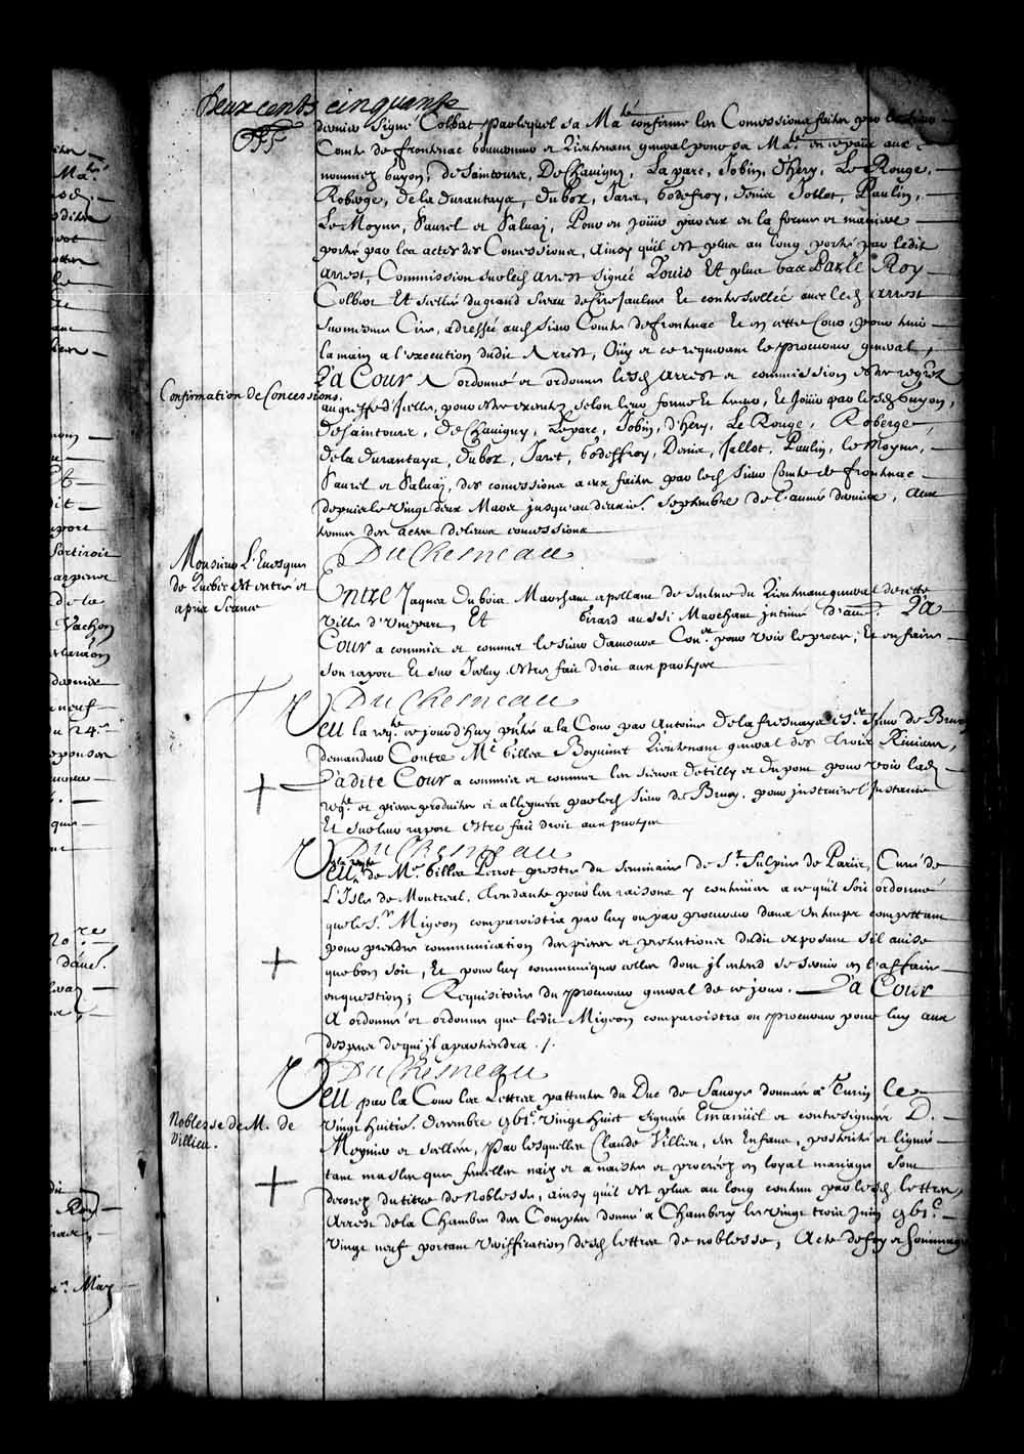 Deux cents cinquante
dernier Signé Colbert, par lequel sa Ma.té confirme les Concessions faites par le sieur
Comte de frontenac gouverneur et Lieutenant general pour sa Ma.té en ce païs aux
nommez Guyon, de Saintours, De Chavigny, Lepare, Jobin, d'hery, Le Rouge,
Roberge, de la durantaye, dubox, Jaret, Godefroy, Denis, Jollot, Paulin,
Le Moyne, Saurel et Saluaij, Pour en jouir par eux en la forme et maniere
porté par les actes des Concessions, Ainsy qu'il est plus au long porté par ledit
arrest, Commission sur led arrest signée Louis Et plus bas Par le Roy
Colbert Et scellé du grand sceau de Cire Jaulne Et contrescellée avec led arrest
sur mesme Cire, adressée aud sieur Comte de frontenac Et en cette Cour, pour tenir
la main a l'execution dudit Arrest, Ouy et ce requerant le procureur general,
La Cour A ordonné et ordonne lesd arrest et commission estre regrez
Confirmation de Concessions.
au greffe d'Icelle, pour estre executez selon leur forme Et teneur, Et Jouir par lesd Guyon,
de Saintours, de Chavigny, Lepare, Jobin, d'hery, Le Rouge, Roberge,
de la durantaye, dubox, Jaret, Godeffroy, Denis, Jallot, Paulin, le Moyne,
Saurel et Saluaij, des concessions a eux faites par led sieur Comte de frontenac
depuis le vingt deux Mars jusqu'au Septembre de l'année derniere, aux
termes des actes de leurs concessions
DuChesneau
Monsieur L'Euesque
de Quebec est entré et
a pris Seance
Entre Jaques Dubois Marchant apellant de Sentence du Lieutenant general de cette
ville d'une part, Et Girard aussi Marchant intimé d'au.e La
Cour a commis et commet le sieur damours Con.er pour voir le procez, Et en faire
son raport Et sur Iceluy estre fait droit aux parties
DuChesneau
Veu la req.te ce jourd'huy p.ntée a la Cour par Antoine de la fresnaye es.er sieur de Brucy
demandeur Contre M.e Gilles Boyuinet Lieutenant general des trois Rivieres,
Ladite Cour a commis et commet les sieurs de tilly et dupont pour voir lad
req.te et pieces produites et alleguées par led sieur de Brucy, pour instruire l'Instance
Et sur leur raport estre fait droit aux parties
DuChesneau
Veu la req.te de M.e Gilles Perrot prestre du Seminaire de S.t Sulpice de Paris, Curé de
L'Isle de Montreal, tendante pour les raisons y contenües a ce qu'il soit ordonné
que le S.r Migeon comparoistra par luy ou par procureur dans un temps competant
pour prendre communication des pieces et pretentions dudit exposant s'il avise
que bon soit, Et pour luy communiquer celles dont il entend se servir en l'affaire
en question; Requisitoire du procureur general de ce jour. La Cour
A ordonné et ordonne que ledit Migeon comparoistra ou procureur pour luy aux
despens de qui il apartiendra ./.
DuChesneau
Veu par la Cour les Lettres pattentes du Duc de Savoye données a Turin le
Noblesse de M. de
Villieu.
vingt huitie. decembre gbi.c vingt huict signées Emanüel et contresignées D.
Meynier et scellées, par lesquelles Claude Villieu, ses Enfans, posterité et lignée
tant masles que femelles naiz et a naistre et procréez en loyal mariage sont
decorez du titre de Noblesse, ainsy qu'il est plus au long contenu par lesd lettres,
Arrest de la Chambre des Comptes donné a Chambery le vingt trois juin gbi.c
vingt neuf portant veriffication desd lettres de noblesse, Acte de foy et hommage